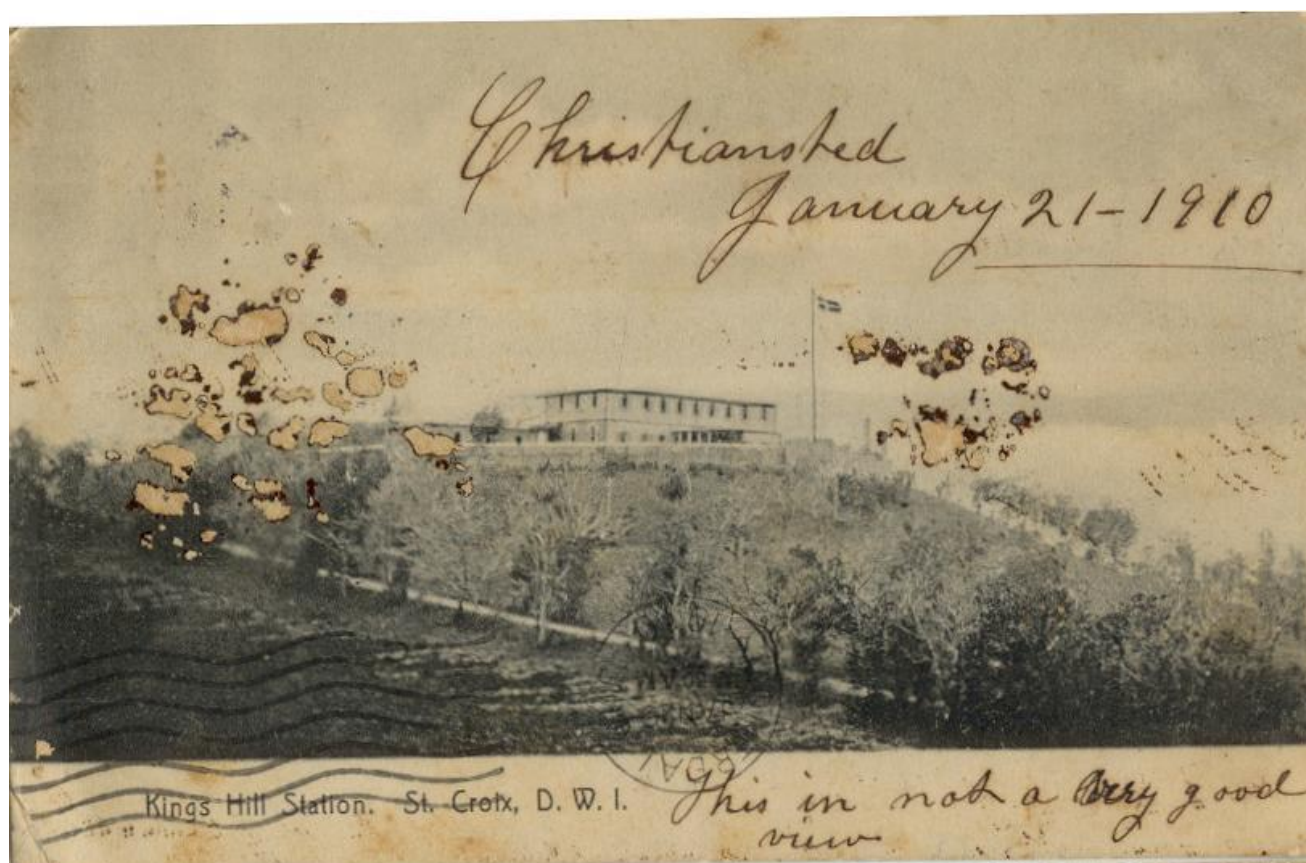 Christiansted
January 21-1910
Kings Hill Station. St. Croix, D. W. I.
This in not a very good
view